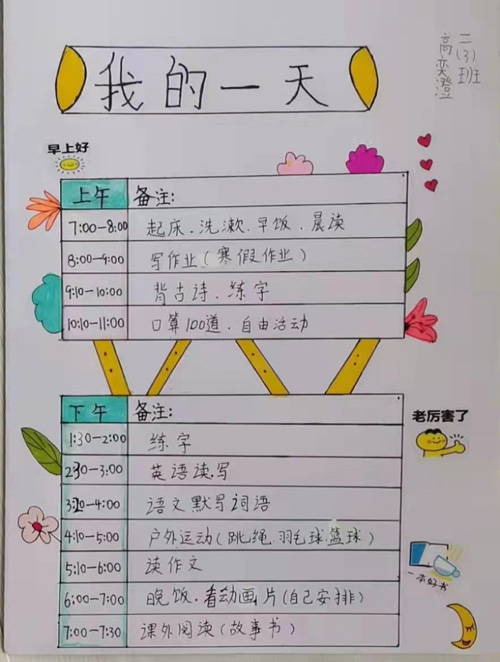 我的一天
二(3)班
高奕澄
早上好
上午 备注:
7:00-8:00 起床.洗漱.早饭.晨读
8:00-9:00 写作业(寒假作业)
9:10-10:00 背古诗.练字
10:10-11:00 口算100道.自由活动
下午 备注:
1:30-2:00 练字
2:30-3:00 英语读写
3:20-4:00 语文默写词语
4:10-5:00 户外运动(跳绳.羽毛球.篮球)
5:10-6:00 读作文
6:00-7:00 晚饭.看动画片(自己安排)
7:00-7:30 课外阅读(故事书)
老厉害了
一本好书